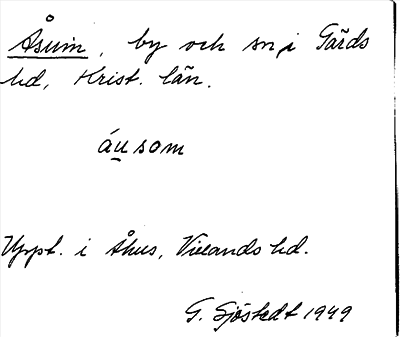 Åsum, by och sn i Gärds
hd, Krist. län.
áusom
Uppt. i Åhus, Villands hd.
G. Sjöstedt 1949